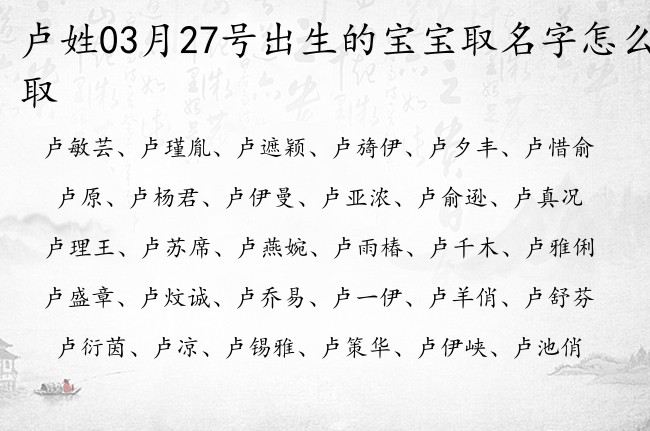 卢姓03月27号出生的宝宝取名字怎么
取
卢敏芸、卢瑾胤、卢遮颖、卢旖伊、卢夕丰、卢惜俞
卢原、卢杨君、卢伊曼、卢亚浓、卢俞逊、卢真况
卢理王、卢苏席、卢燕婉、卢雨椿、卢千木、卢雅俐
卢盛章、卢炆诚、卢乔易、卢一伊、卢羊俏、卢舒芬
卢衍茵、卢凉、卢锡雅、卢策华、卢伊峡、卢池俏